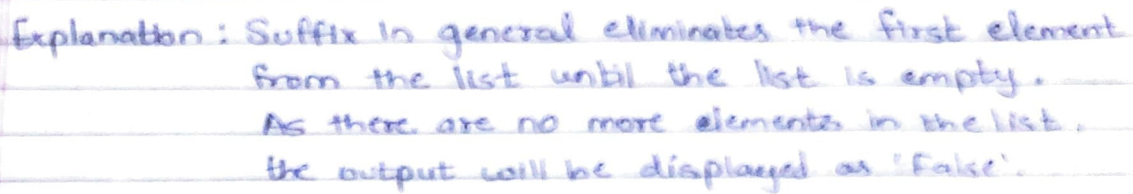 Explanation : Suffix in general eliminates the first element
from the list until the list is empty.
As there are no more elements in the list,
the output will be displayed as 'False'.